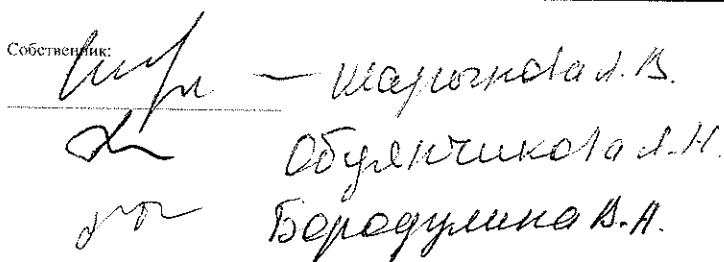 Собственник:
Шарыпова Л.В.
Обулянчикова Л.Н.
Бородулина В.А.